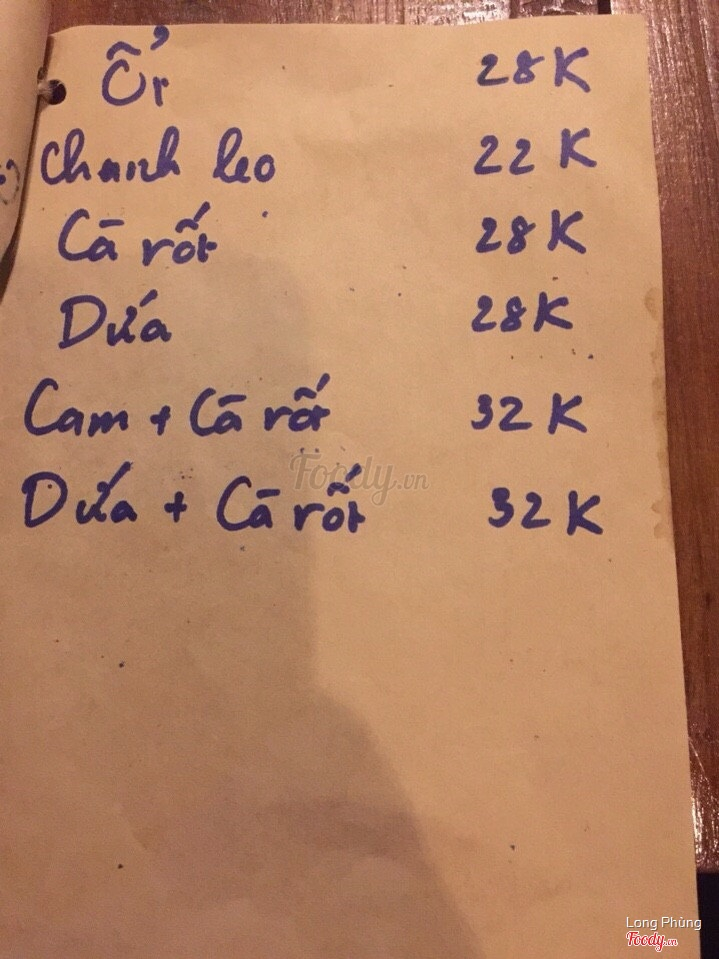 Ổi 28K
Chanh leo 22K
Cà rốt 28K
Dứa 28K
Cam + Cà rốt 32K
Dứa + Cà rốt 32K
Foody.vn
Long Phùng
Foody.vn